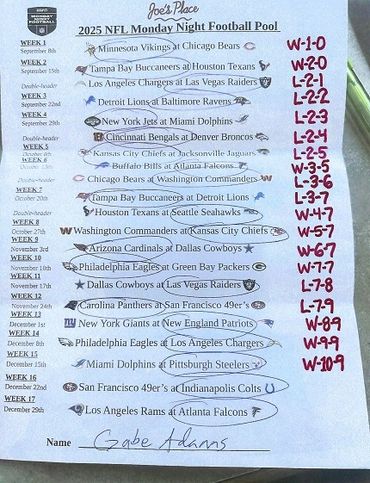 ESPN
MONDAY NIGHT FOOTBALL
Joe's Place
2025 NFL Monday Night Football Pool
WEEK 1
September 8th
Minnesota Vikings at Chicago Bears W-1-0
WEEK 2
September 15th
Tampa Bay Buccaneers at Houston Texans W-2-0
Double-header
Los Angeles Chargers at Las Vegas Raiders L-2-1
WEEK 3
September 22nd
Detroit Lions at Baltimore Ravens L-2-2
WEEK 4
September 29th
New York Jets at Miami Dolphins L-2-3
Double-header
Cincinnati Bengals at Denver Broncos L-2-4
WEEK 5
October 6th
Kansas City Chiefs at Jacksonville Jaguars L-2-5
WEEK 6
October 13th
Buffalo Bills at Atlanta Falcons W-3-5
Double-header
Chicago Bears at Washington Commanders L-3-6
WEEK 7
October 20th
Tampa Bay Buccaneers at Detroit Lions L-3-7
Double-header
Houston Texans at Seattle Seahawks W-4-7
WEEK 8
October 27th
Washington Commanders at Kansas City Chiefs W-5-7
WEEK 9
November 3rd
Arizona Cardinals at Dallas Cowboys W-6-7
WEEK 10
November 10th
Philadelphia Eagles at Green Bay Packers W-7-7
WEEK 11
November 17th
Dallas Cowboys at Las Vegas Raiders L-7-8
WEEK 12
November 24th
Carolina Panthers at San Francisco 49er's L-7-9
WEEK 13
December 1st
New York Giants at New England Patriots W-8-9
WEEK 14
December 8th
Philadelphia Eagles at Los Angeles Chargers W-9-9
WEEK 15
December 15th
Miami Dolphins at Pittsburgh Steelers W-10-9
WEEK 16
December 22nd
San Francisco 49er's at Indianapolis Colts
WEEK 17
December 29th
Los Angeles Rams at Atlanta Falcons
Name Gabe Adams